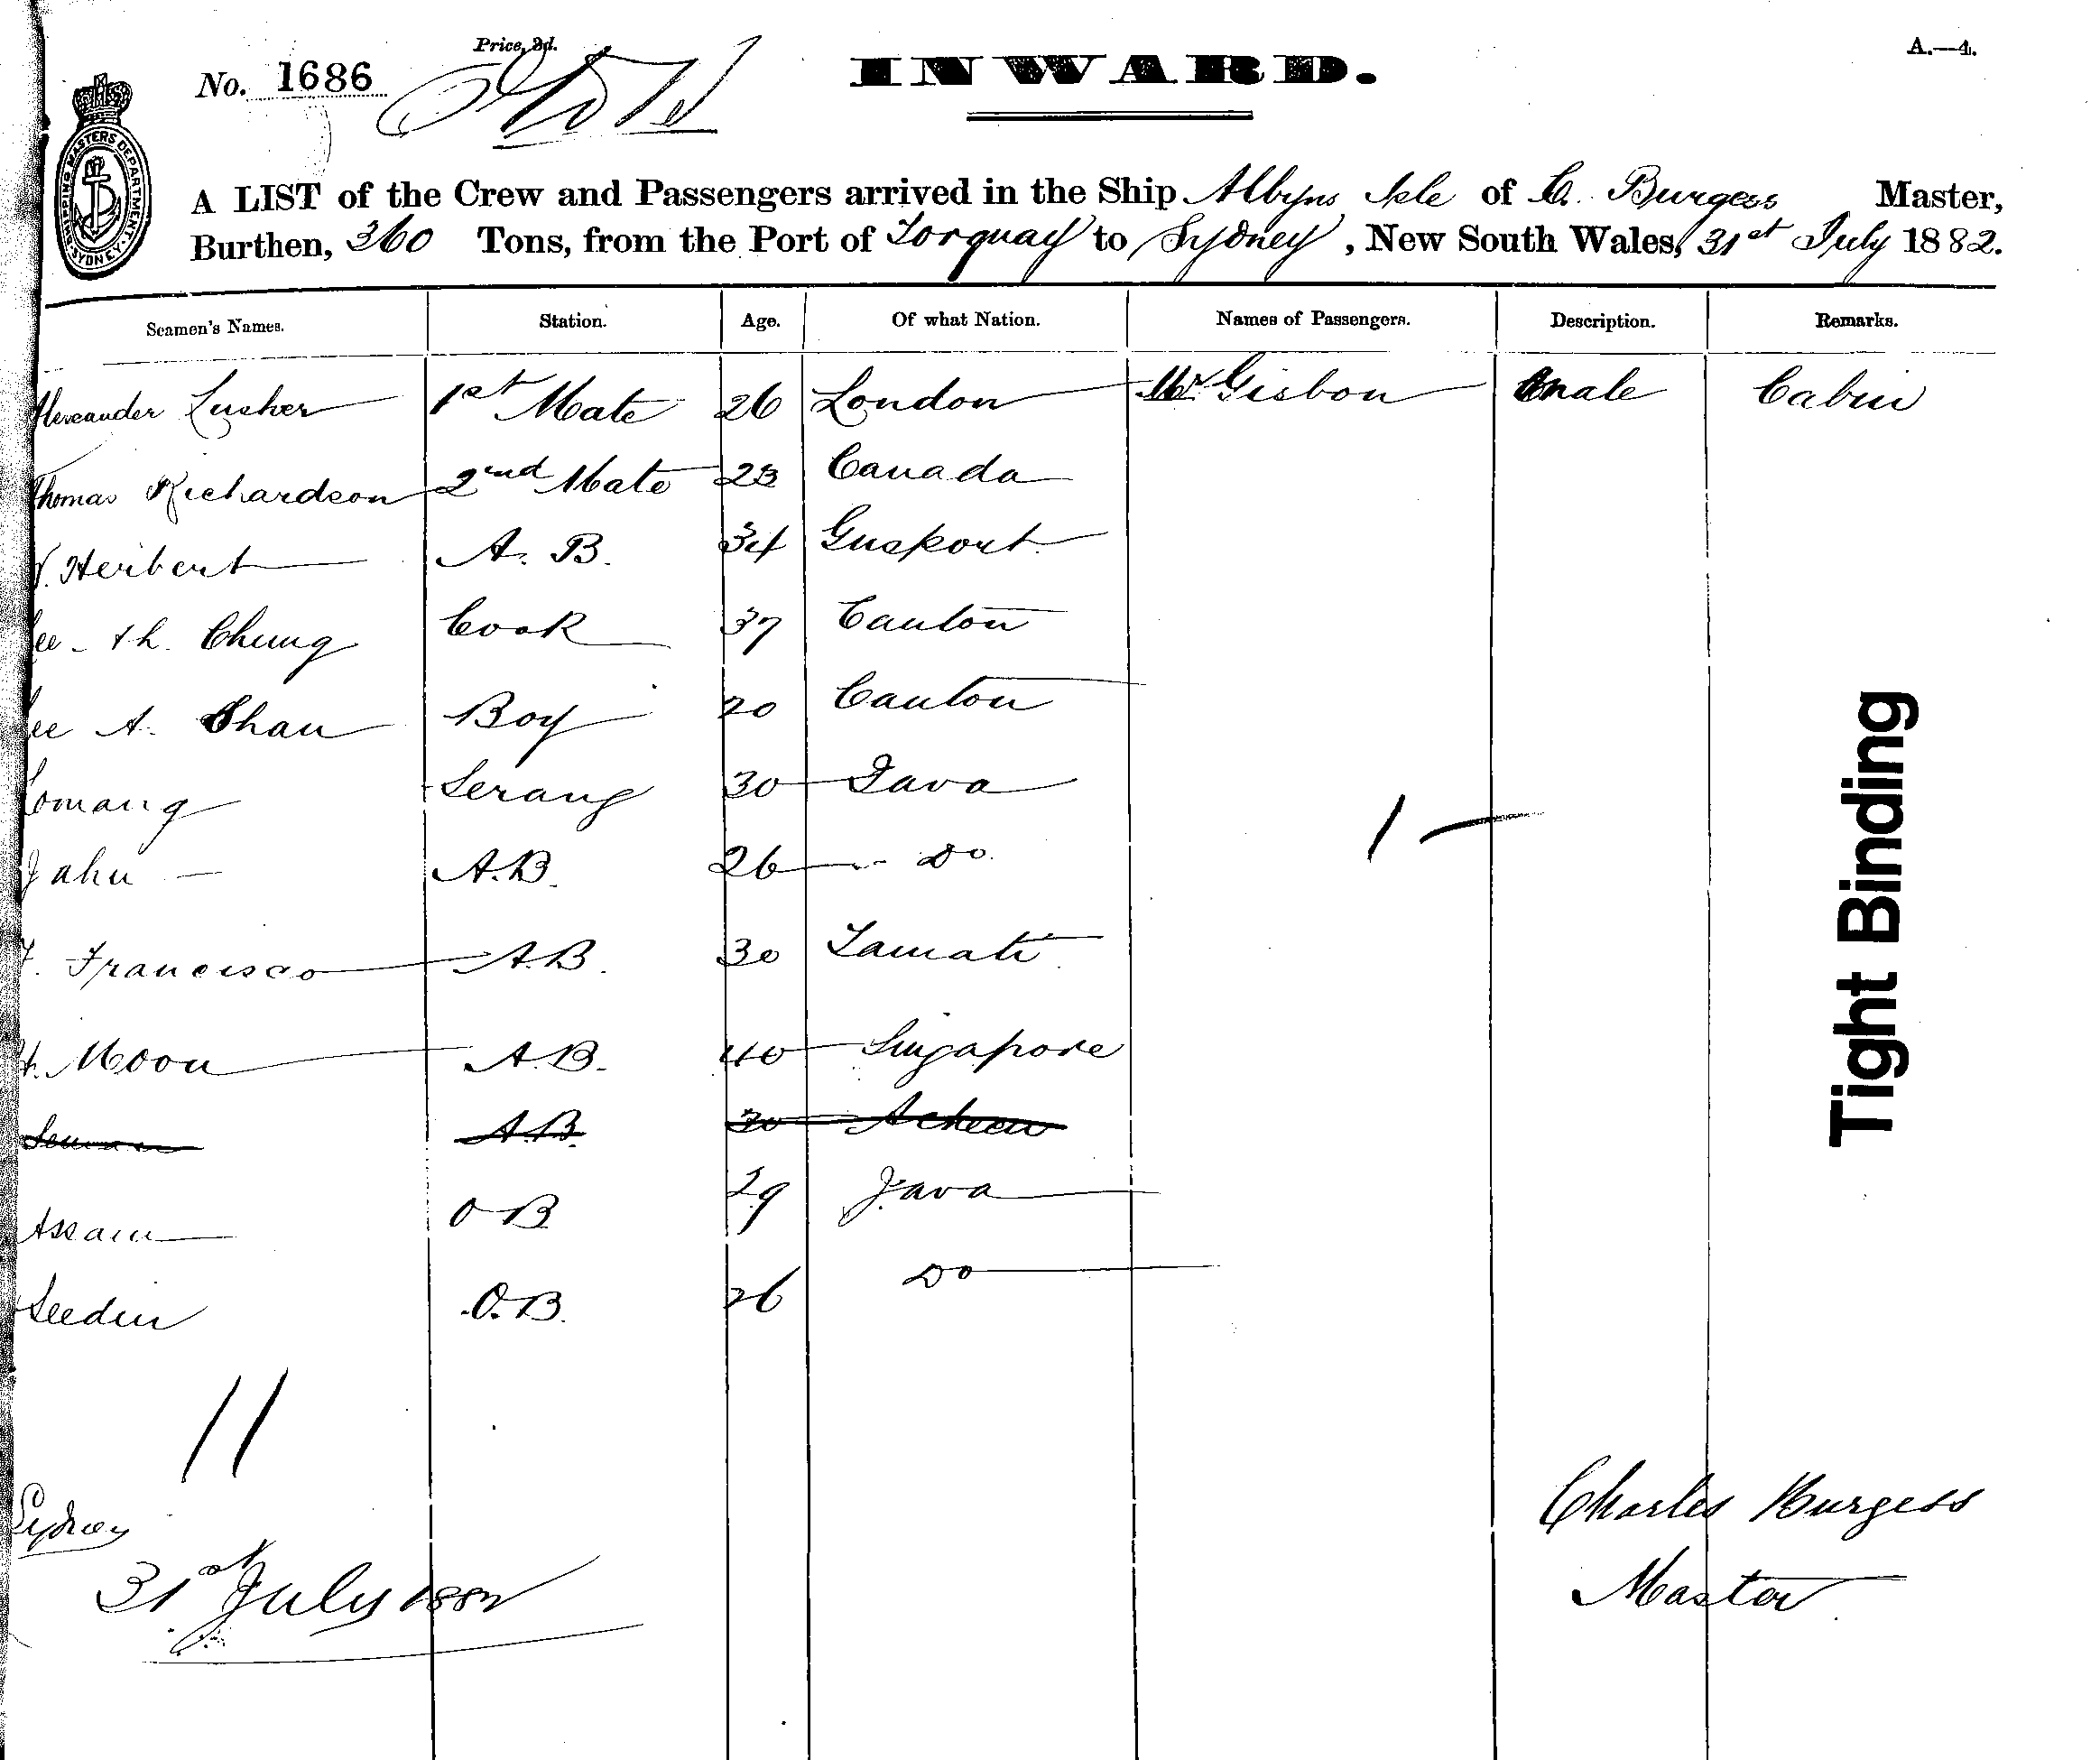 Price, 3d.
A.—4.
No. 1686
INWARD.
SHIPPING MASTERS DEPARTMENT. SYDNEY.
A LIST of the Crew and Passengers arrived in the Ship Albyns Isle of C. Burgess Master,
Burthen, 360 Tons, from the Port of Torquay to Sydney, New South Wales, 31st July 1882.
Seamen's Names. Station. Age. Of what Nation. Names of Passengers. Description. Remarks.
Alexander Lusher 1st Mate 26 London Mr Gisbon male Cabin
Thomas Richardson 2nd Mate 23 Canada
Herbert A. B. 34 Gusport
Lee Ah. Chung Cook 37 Canton
Lee A. Chan Boy 20 Canton
Lomang Serang 30 Java
Jahn A.B. 26 Do
Francisco A.B. 30 Tamati
H. Moon A.B. 40 Singapore
A.B. 30 Acheen
Assam O B 29 Java
Seedin O.B. 26 Do
1
11
Tight Binding
Sydney
31st July 1882
Charles Burgess
Master